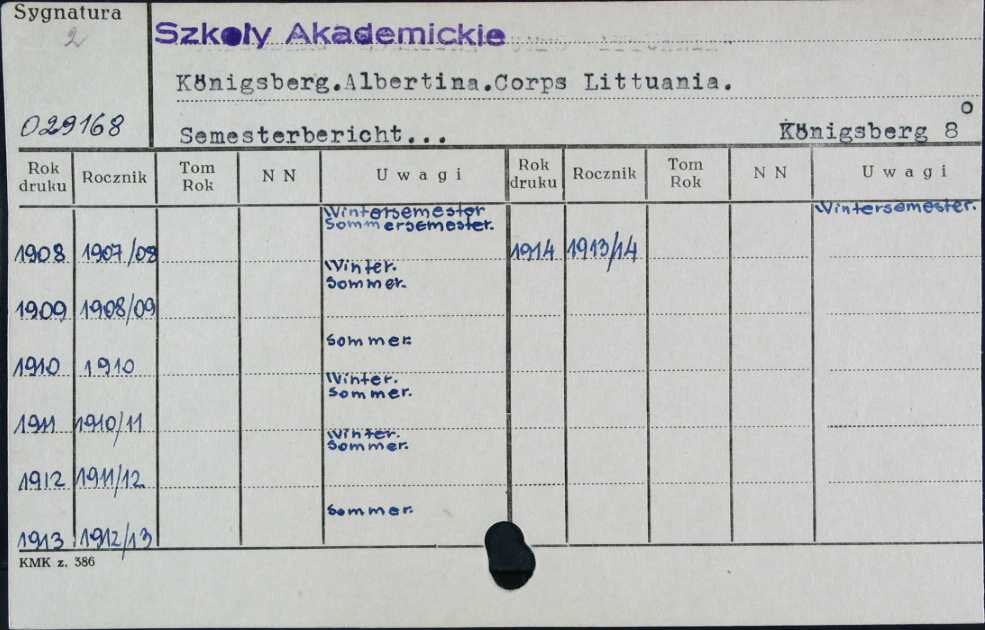 Sygnatura
2
Szkoły Akademickie
Königsberg.Albertina.Corps Littuania.
029168
Semesterbericht... Königsberg 8°
Rok druku Rocznik Tom Rok N N Uwagi Rok druku Rocznik Tom Rok N N Uwagi
Wintersemester Wintersemester.
Sommersemester.
1908 1907/08 1914 1913/14
Winter.
Sommer.
1909 1908/09
Sommer.
1910 1910
Winter.
Sommer.
1911 1910/11
Winter.
Sommer.
1912 1911/12
Sommer.
1913 1912/13
KMK z. 386